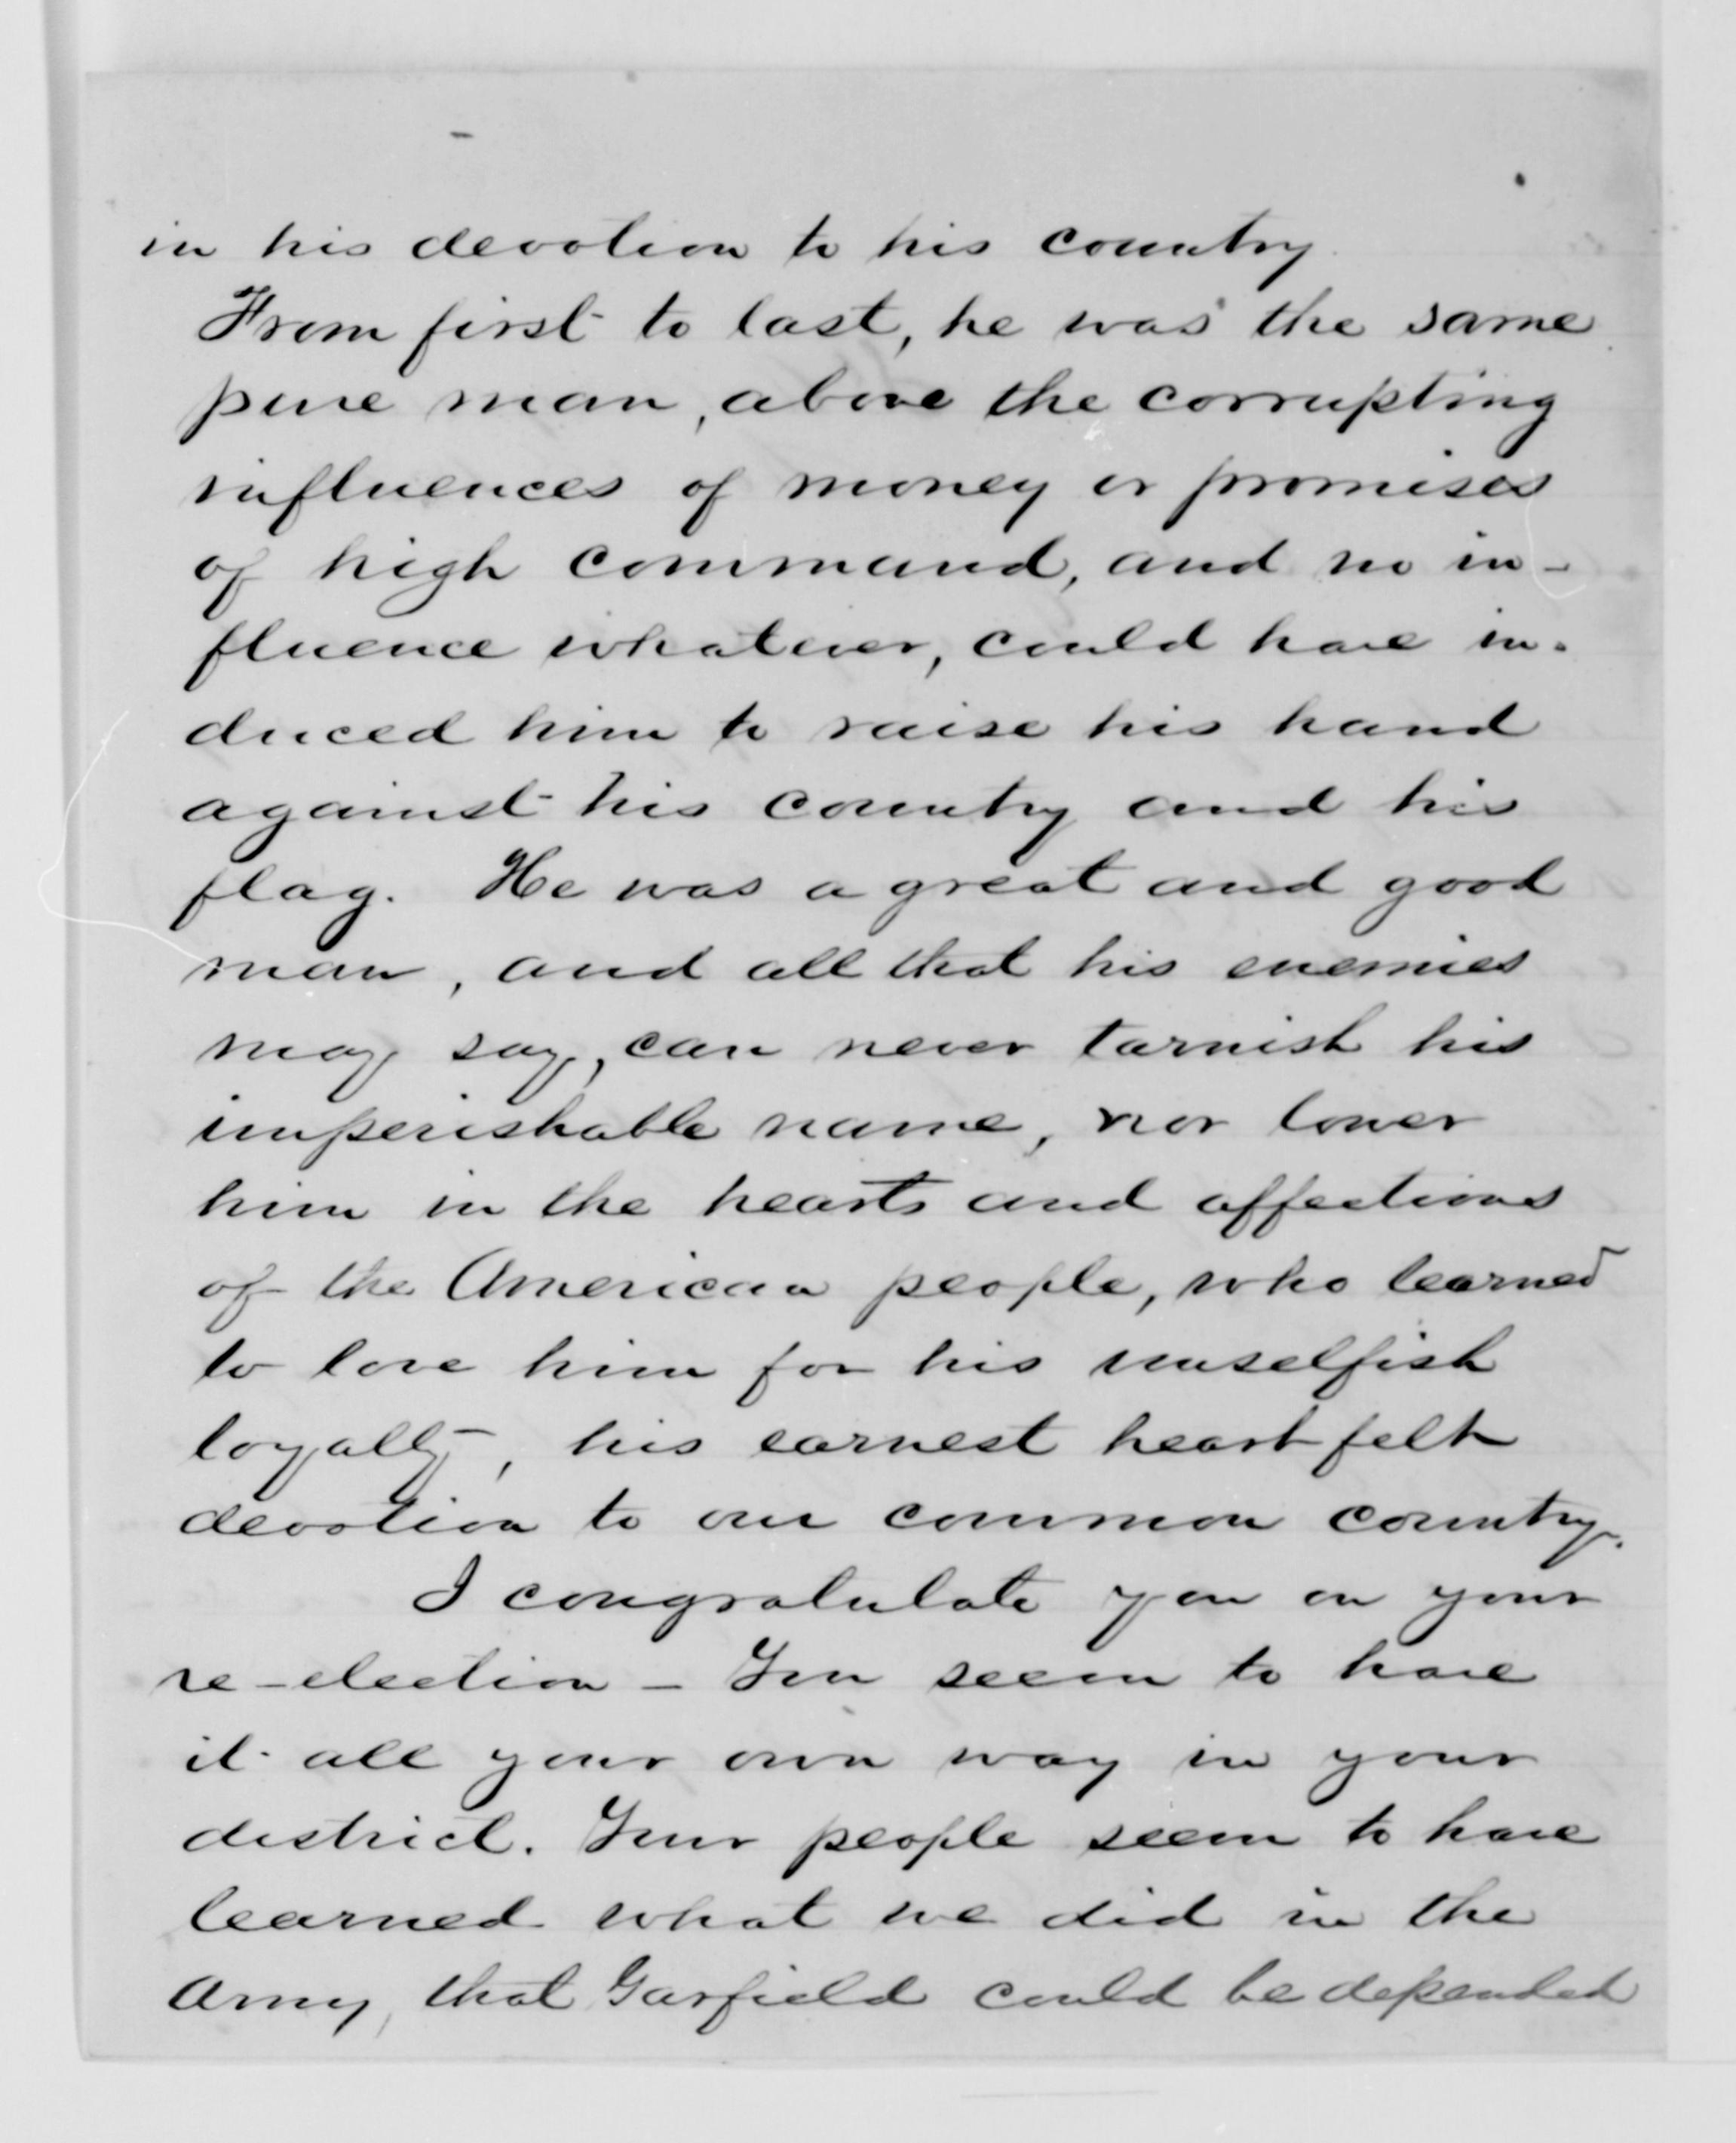 in his devotion to his country.
From first to last, he was the same
pure man, above the corrupting
influences of money or promises
of high command, and no in-
fluence whatever, could have in-
duced him to raise his hand
against his country and his
flag. He was a great and good
man, and all that his enemies
may say, can never tarnish his
imperishable name, nor lower
him in the hearts and affections
of the American people, who learned
to love him for his unselfish
loyalty, his earnest heartfelt
devotion to our common country.
I congratulate you on your
re-election - You seem to have
it all your own way in your
district. Your people seem to have
learned what we did in the
Army, that Garfield could be depended